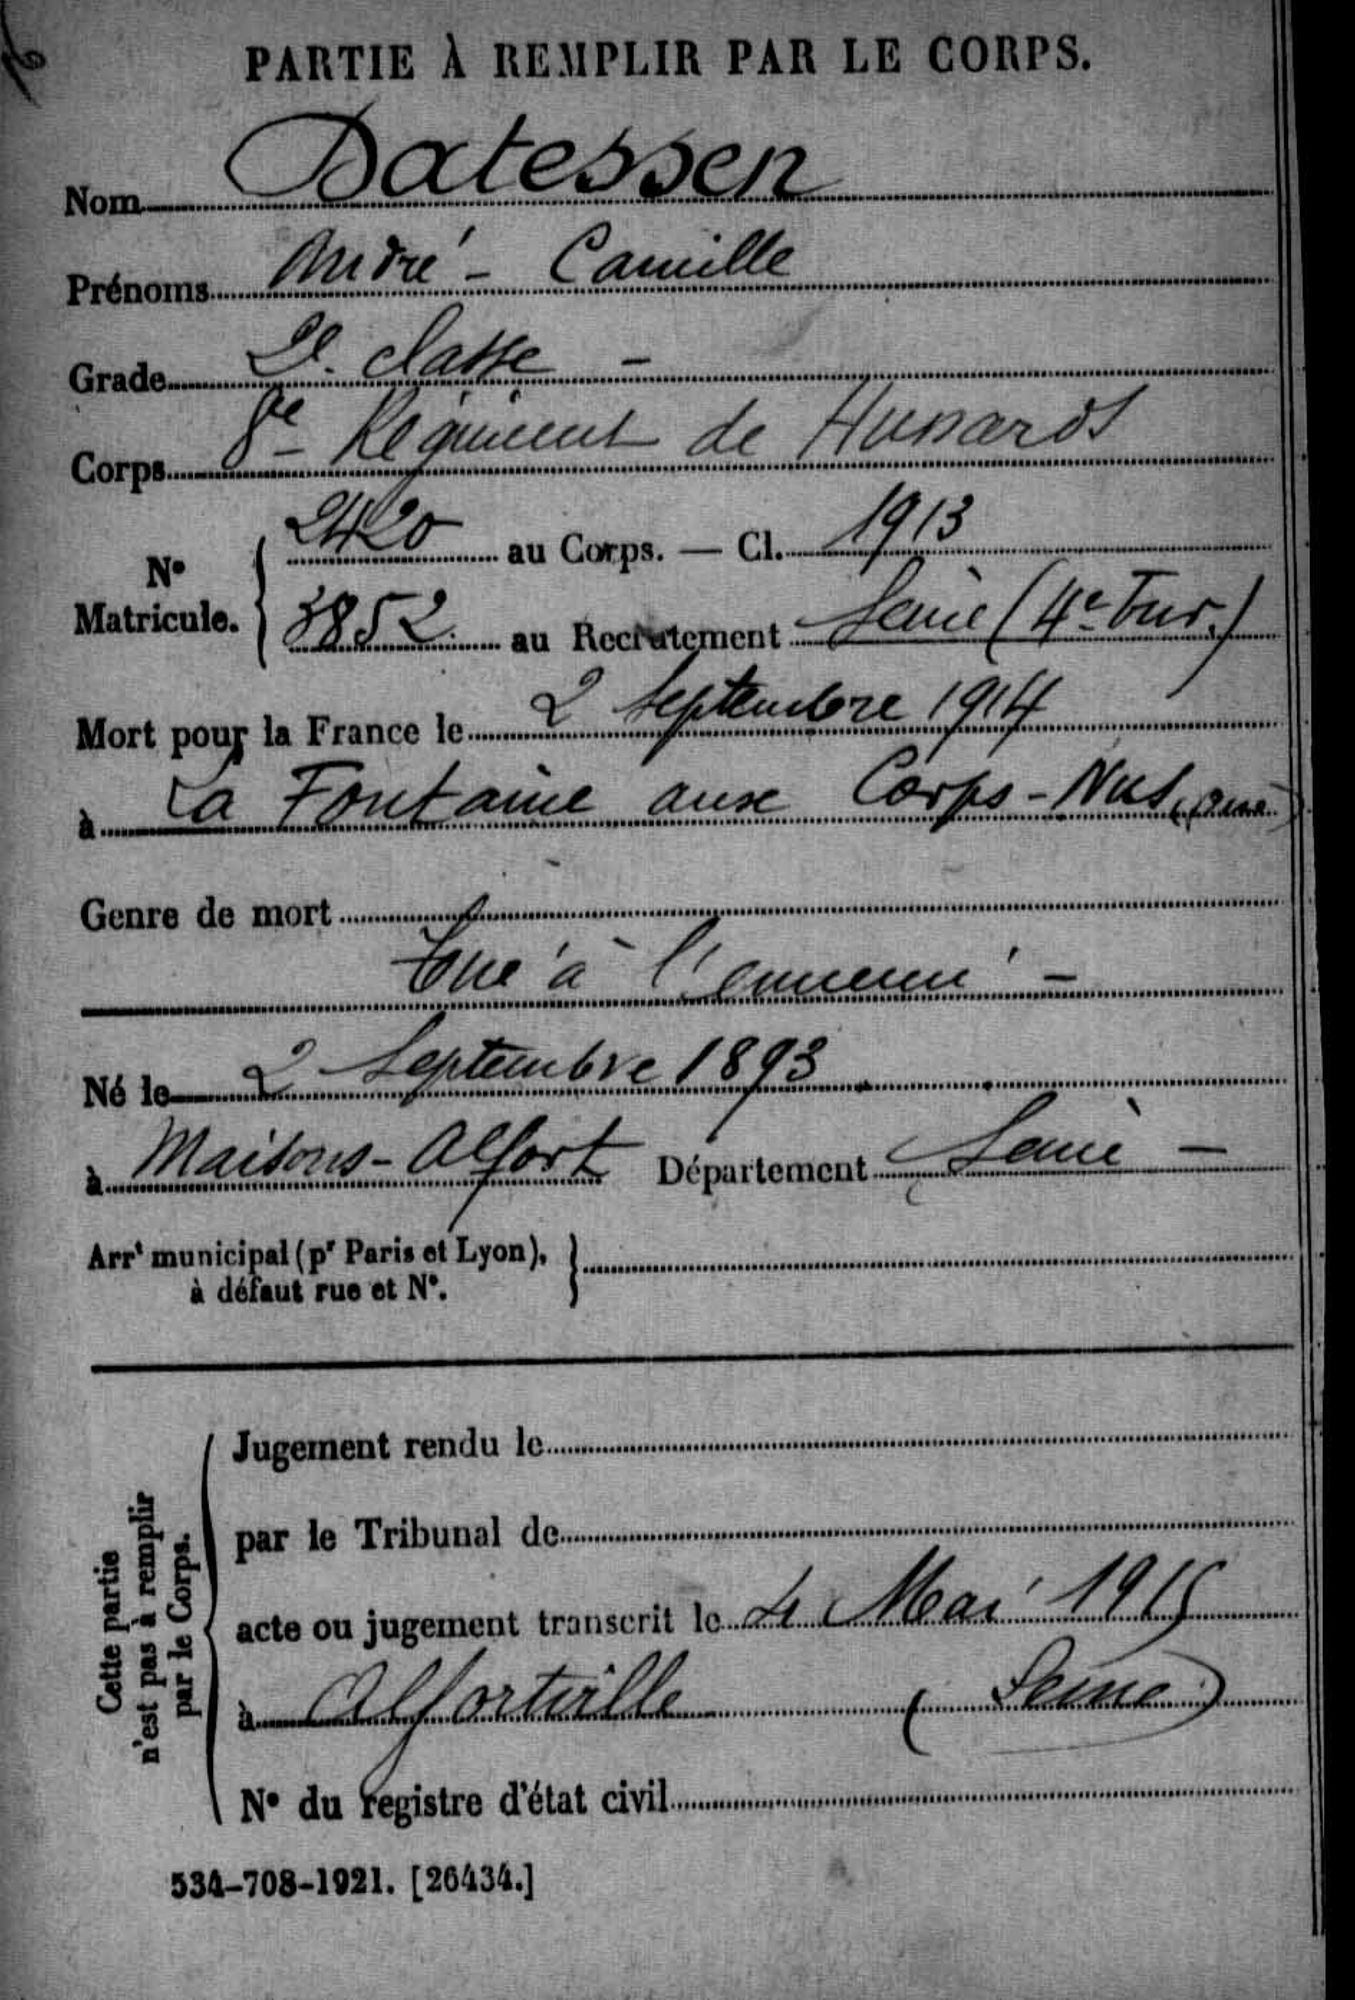 PARTIE À REMPLIR PAR LE CORPS.
Nom Datessen
Prénoms André - Camille
Grade 2e. classe -
Corps 8e Régiment de Hussards
N° Matricule. { 2420 au Corps. — Cl. 1913
3852 au Recrutement Seine (4e Bur.)
Mort pour la France le 2 Septembre 1914
à La Fontaine aux Corps-Nus
Genre de mort
Tué à l'ennemi -
Né le 2 Septembre 1893
à Maisons-Alfort Département Seine -
Arrt municipal (pr Paris et Lyon), }
à défaut rue et N°.
Cette partie
n'est pas à remplir
par le Corps.
Jugement rendu le
par le Tribunal de
acte ou jugement transcrit le 4 Mai 1915
à Alfortville (Seine)
N° du registre d'état civil
534-708-1921. [26434.]